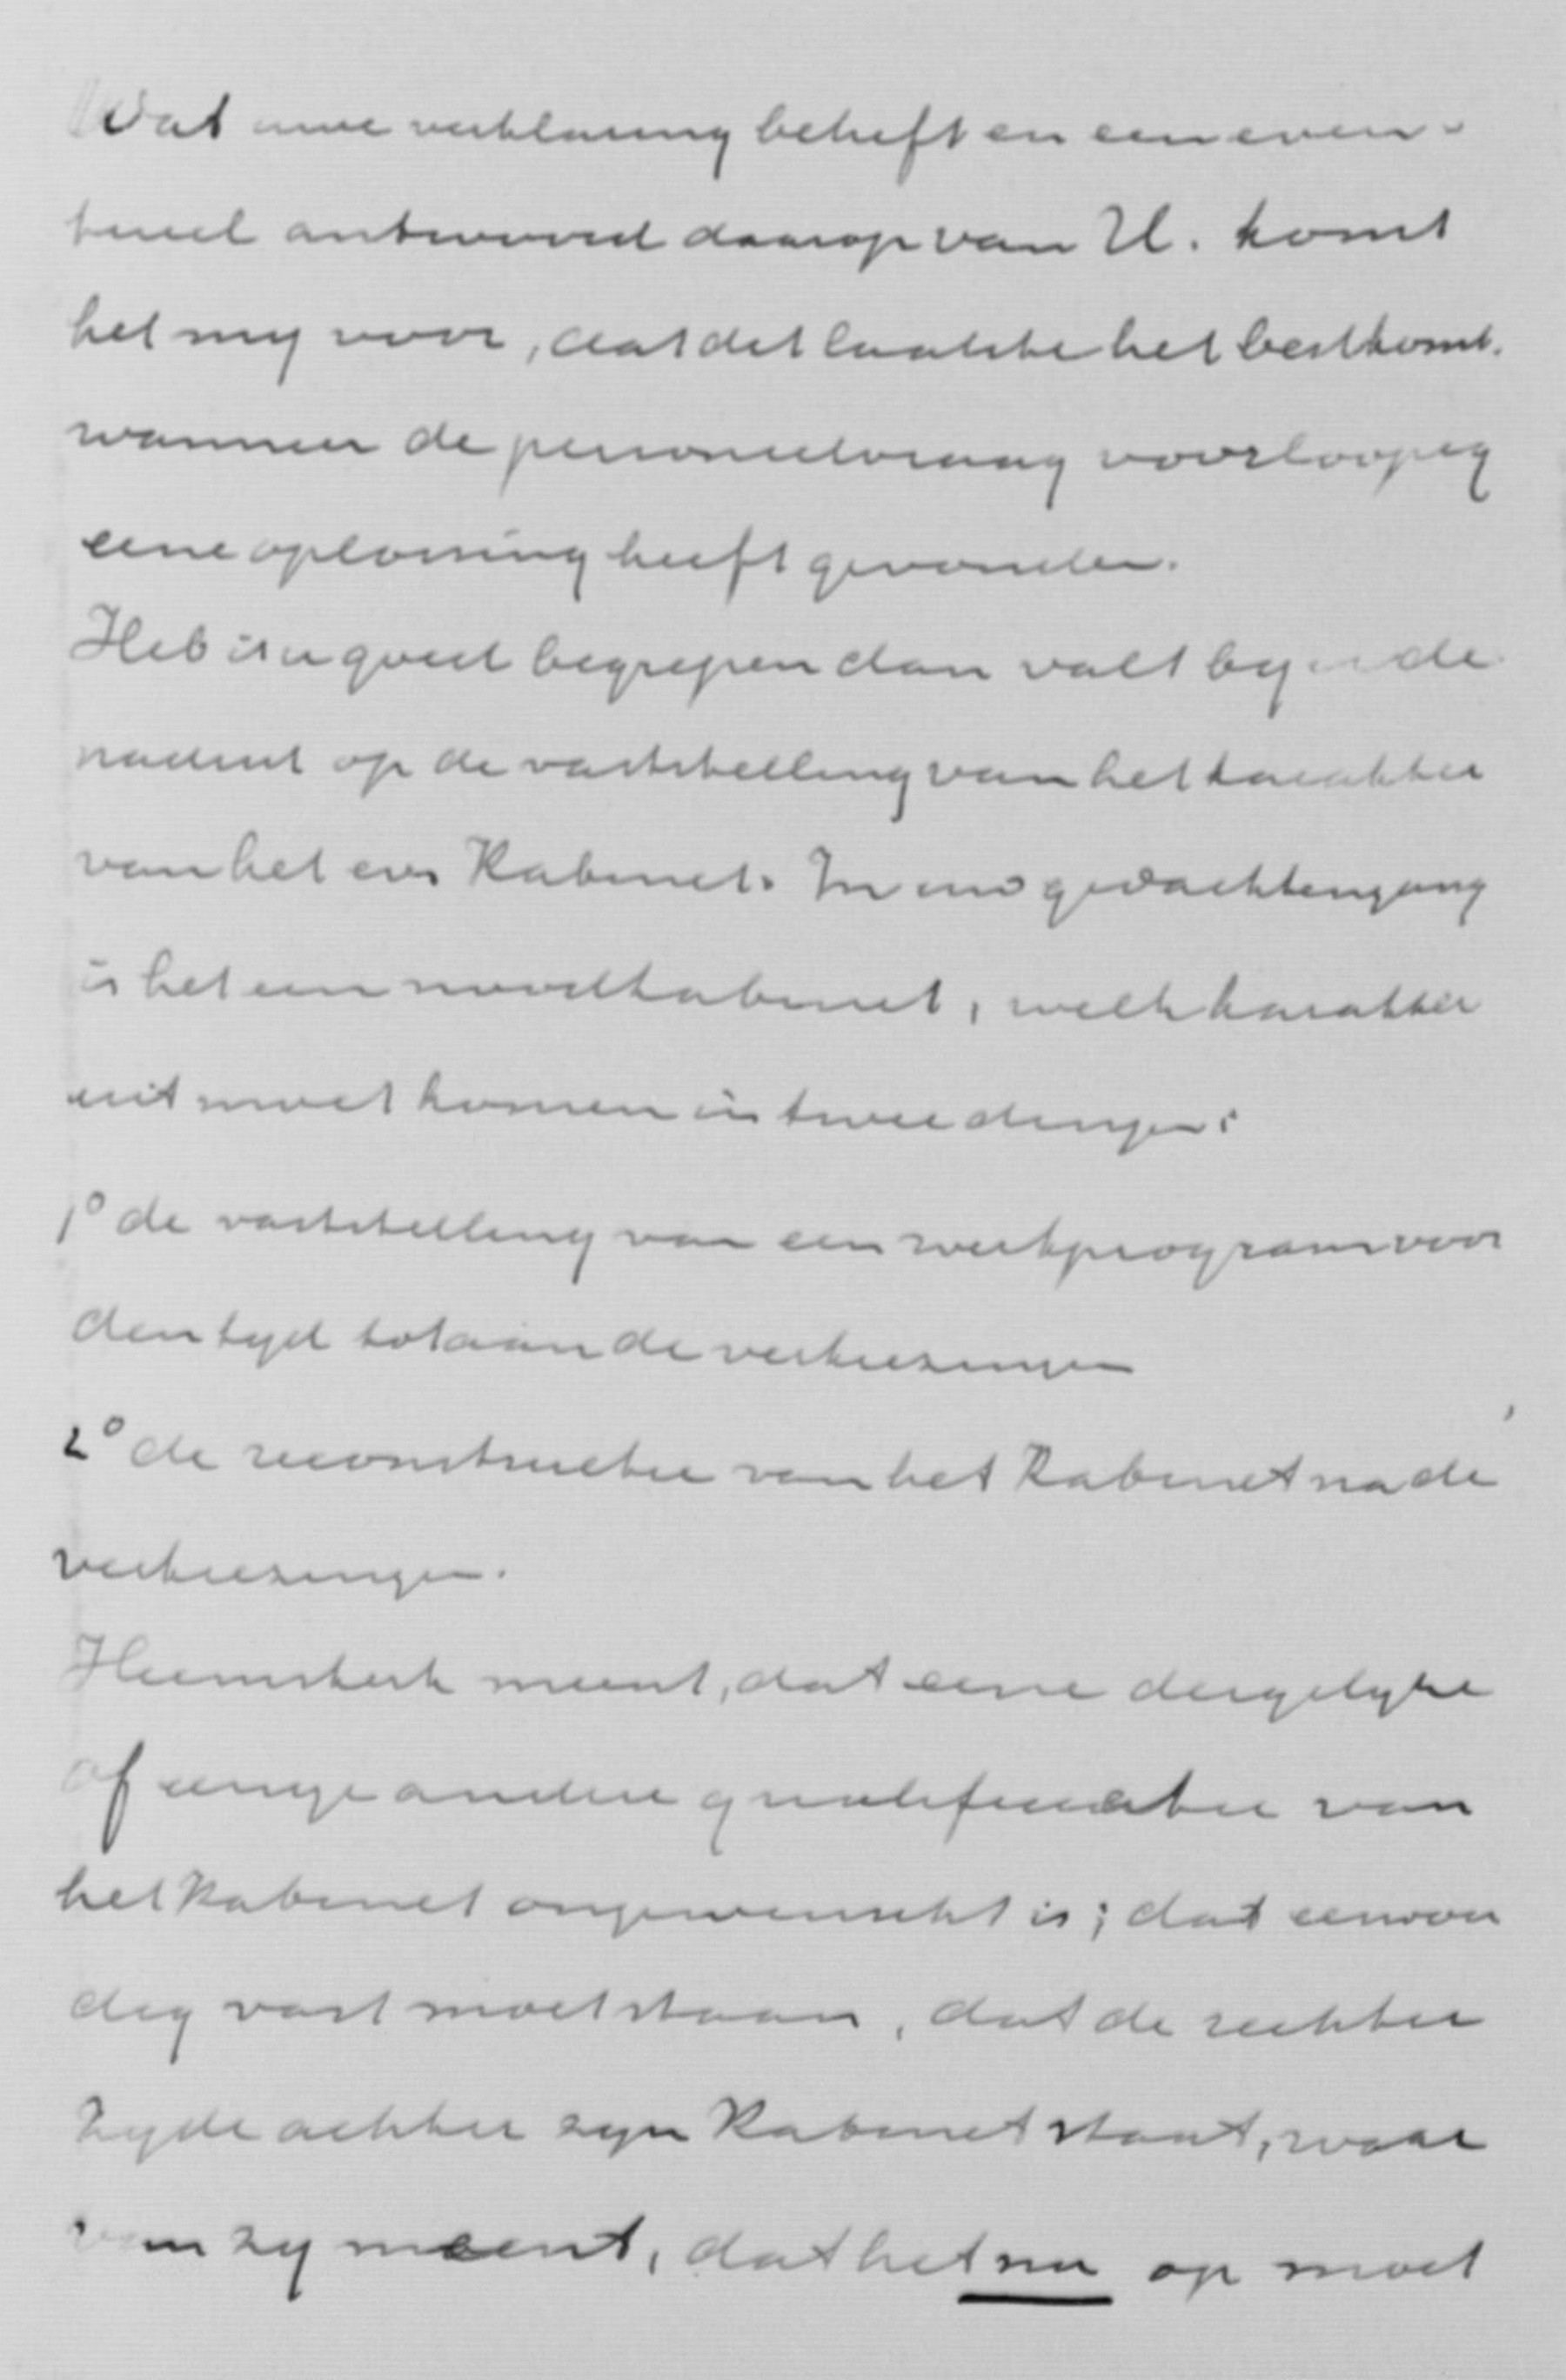 Wat uwe verklaring betreft en een even-
tueel antwoord daarop van U. komt
het my voor, dat dit laatste het best komt.
wanneer de personeelvraag voorloopig
eene oplossing heeft gevonden.
Heb ik u goed begrepen dan valt by u de
nadruk op de vaststelling van het karakter
van het ev. Kabinet. In uw gedachtengang
is het een noodkabinet, welk karakter
uit moet komen in twee dingen:
1º de vaststelling van een werkprogram voor
den tyd tot aan de verkiezingen
2º de reconstructie van het Kabinet na de
verkiezingen.
Heemskerk meent, dat eene dergelyke
of eenige andere qualificatie van
het Kabinet ongewenscht is; dat eenvou
dig vast moet staan, dat de rechter
zyde achter zyn Kabinet staat, waar
van zy meent, dat het nu op moet